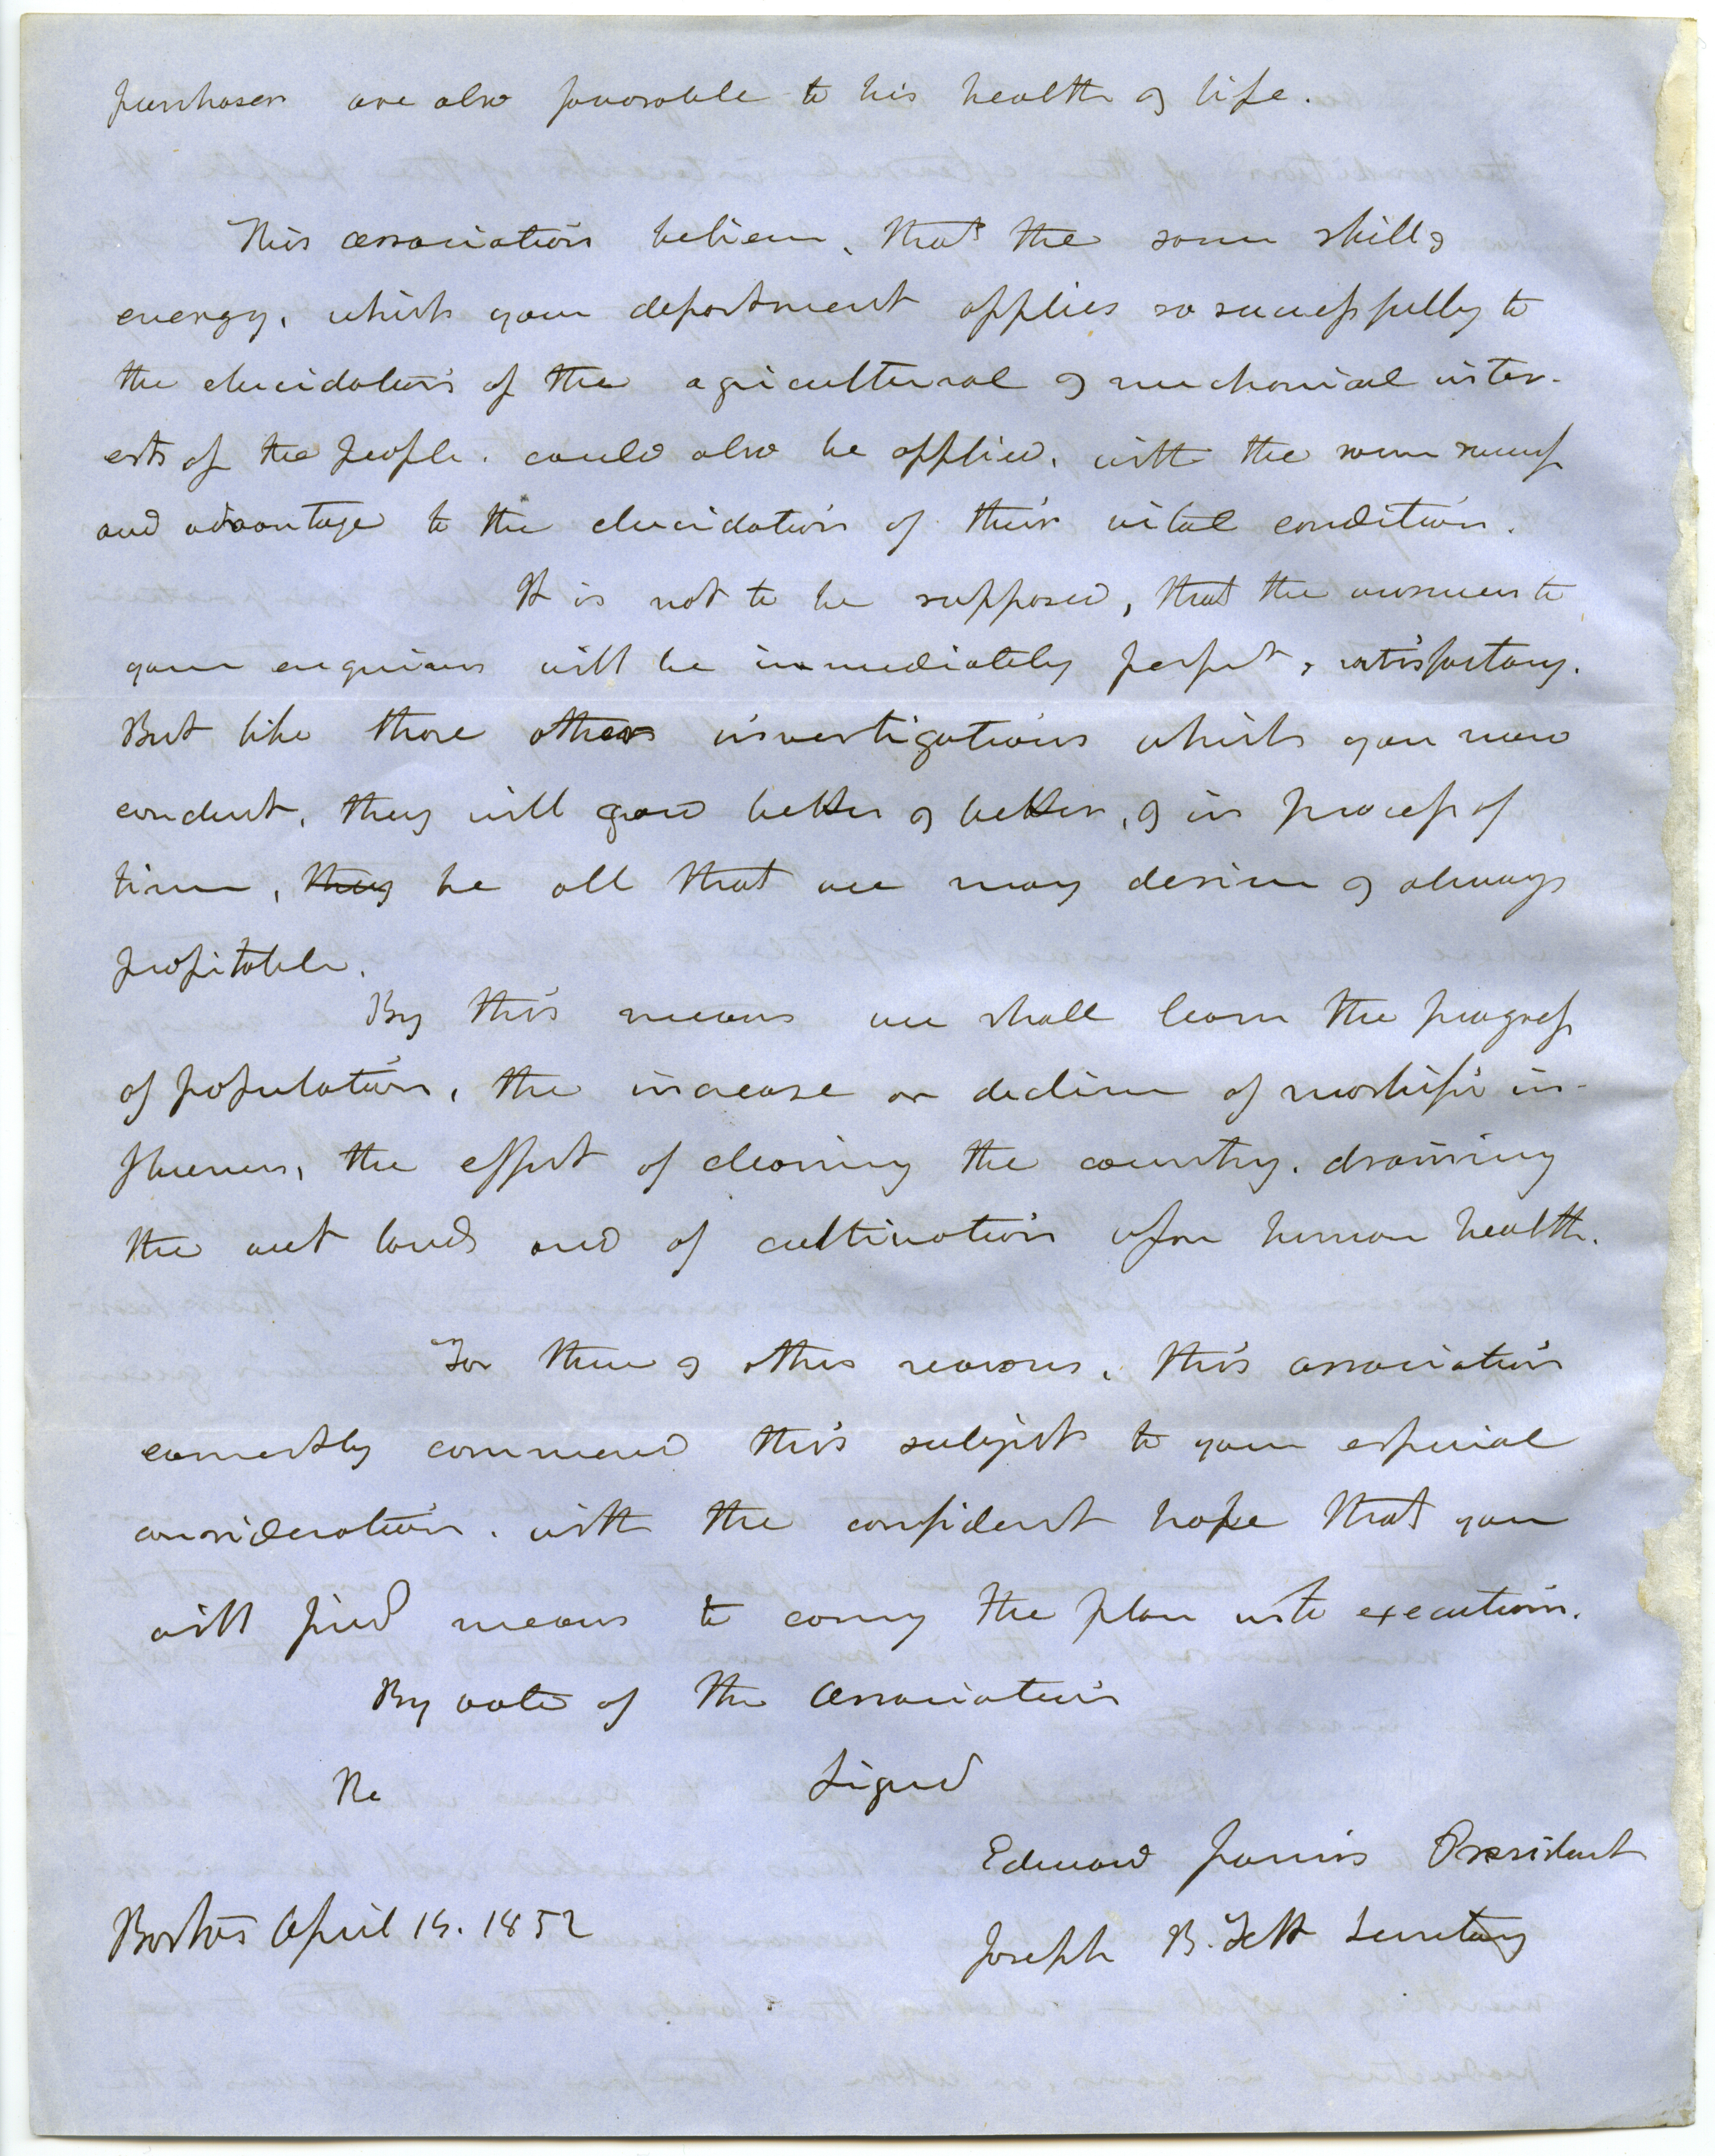 purchaser are also favorable to his health & life.
This association believe, that the same skill &
energy, which your department applies so successfully to
the elucidation of the agricultural & mechanical inter-
ests of the people. could also be applied, with the same success
and advantage to the elucidation of their vital condition.
It is not to be supposed, that the answers to
your enquiries will be immediately perfect, satisfactory.
But like those others investigations which you now
conduct, they will grow better & better, & in process of
time, they be all that we may desire & always
profitable.
By this means we shall learn the progress
of population, the increase or decline of morbific in-
fluences, the effect of clearing the country. draining
the wet lands and of cultivation upon human health.
For these & other reasons, this association
earnestly commend this subject to your especial
consideration. with the confident hope that you
will find means to carry the plan into execution.
By vote of the Association
The Signed
Edward Jarvis President
Boston April 1852
Joseph B. Felt Secretary